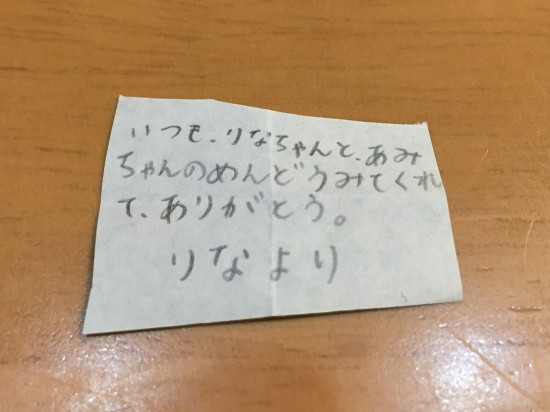 いつも、りなちゃんと、あみ
ちゃんのめんどうみてくれ
て、ありがとう。
りなより